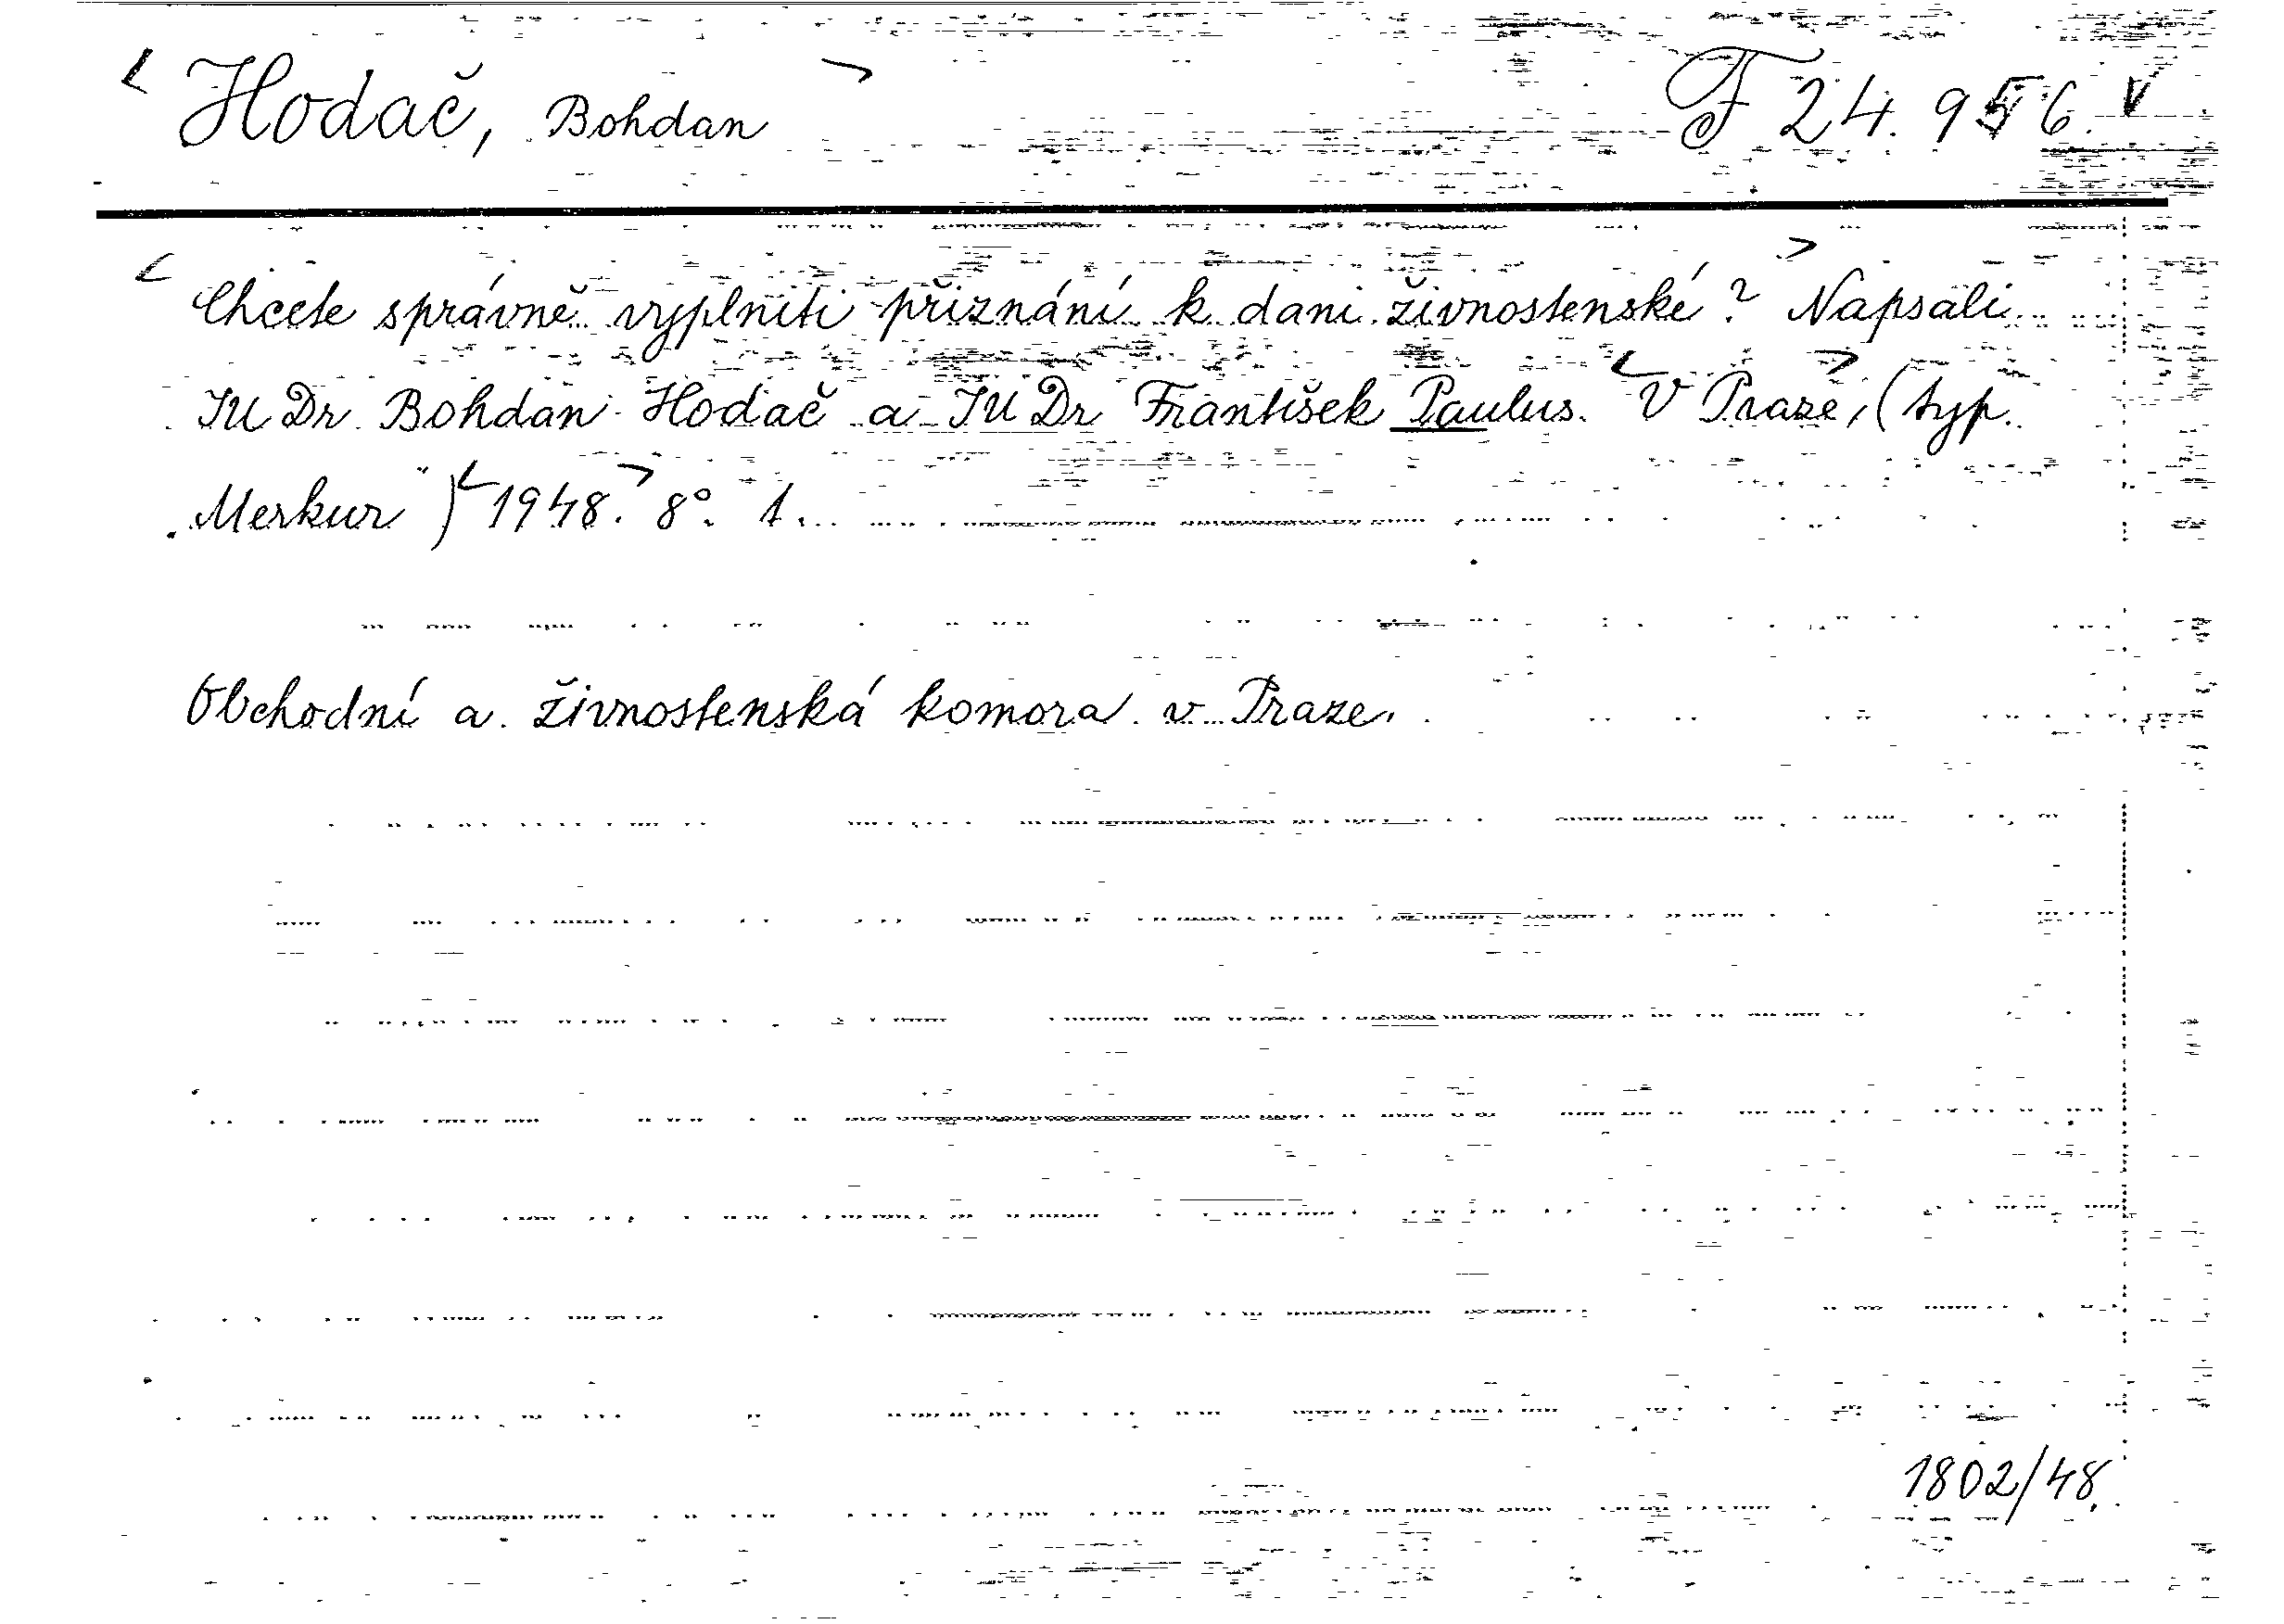 Hodač, Bohdan F 24.956.
Chcete správně vyplniti přiznání k dani živnostenské? Napsali
JUDr Bohdan Hodač a JUDr František Paulus. V Praze, (typ.
„Merkur") 1948. 8°. 1.
Obchodní a živnostenská komora v Praze.
1802/48.